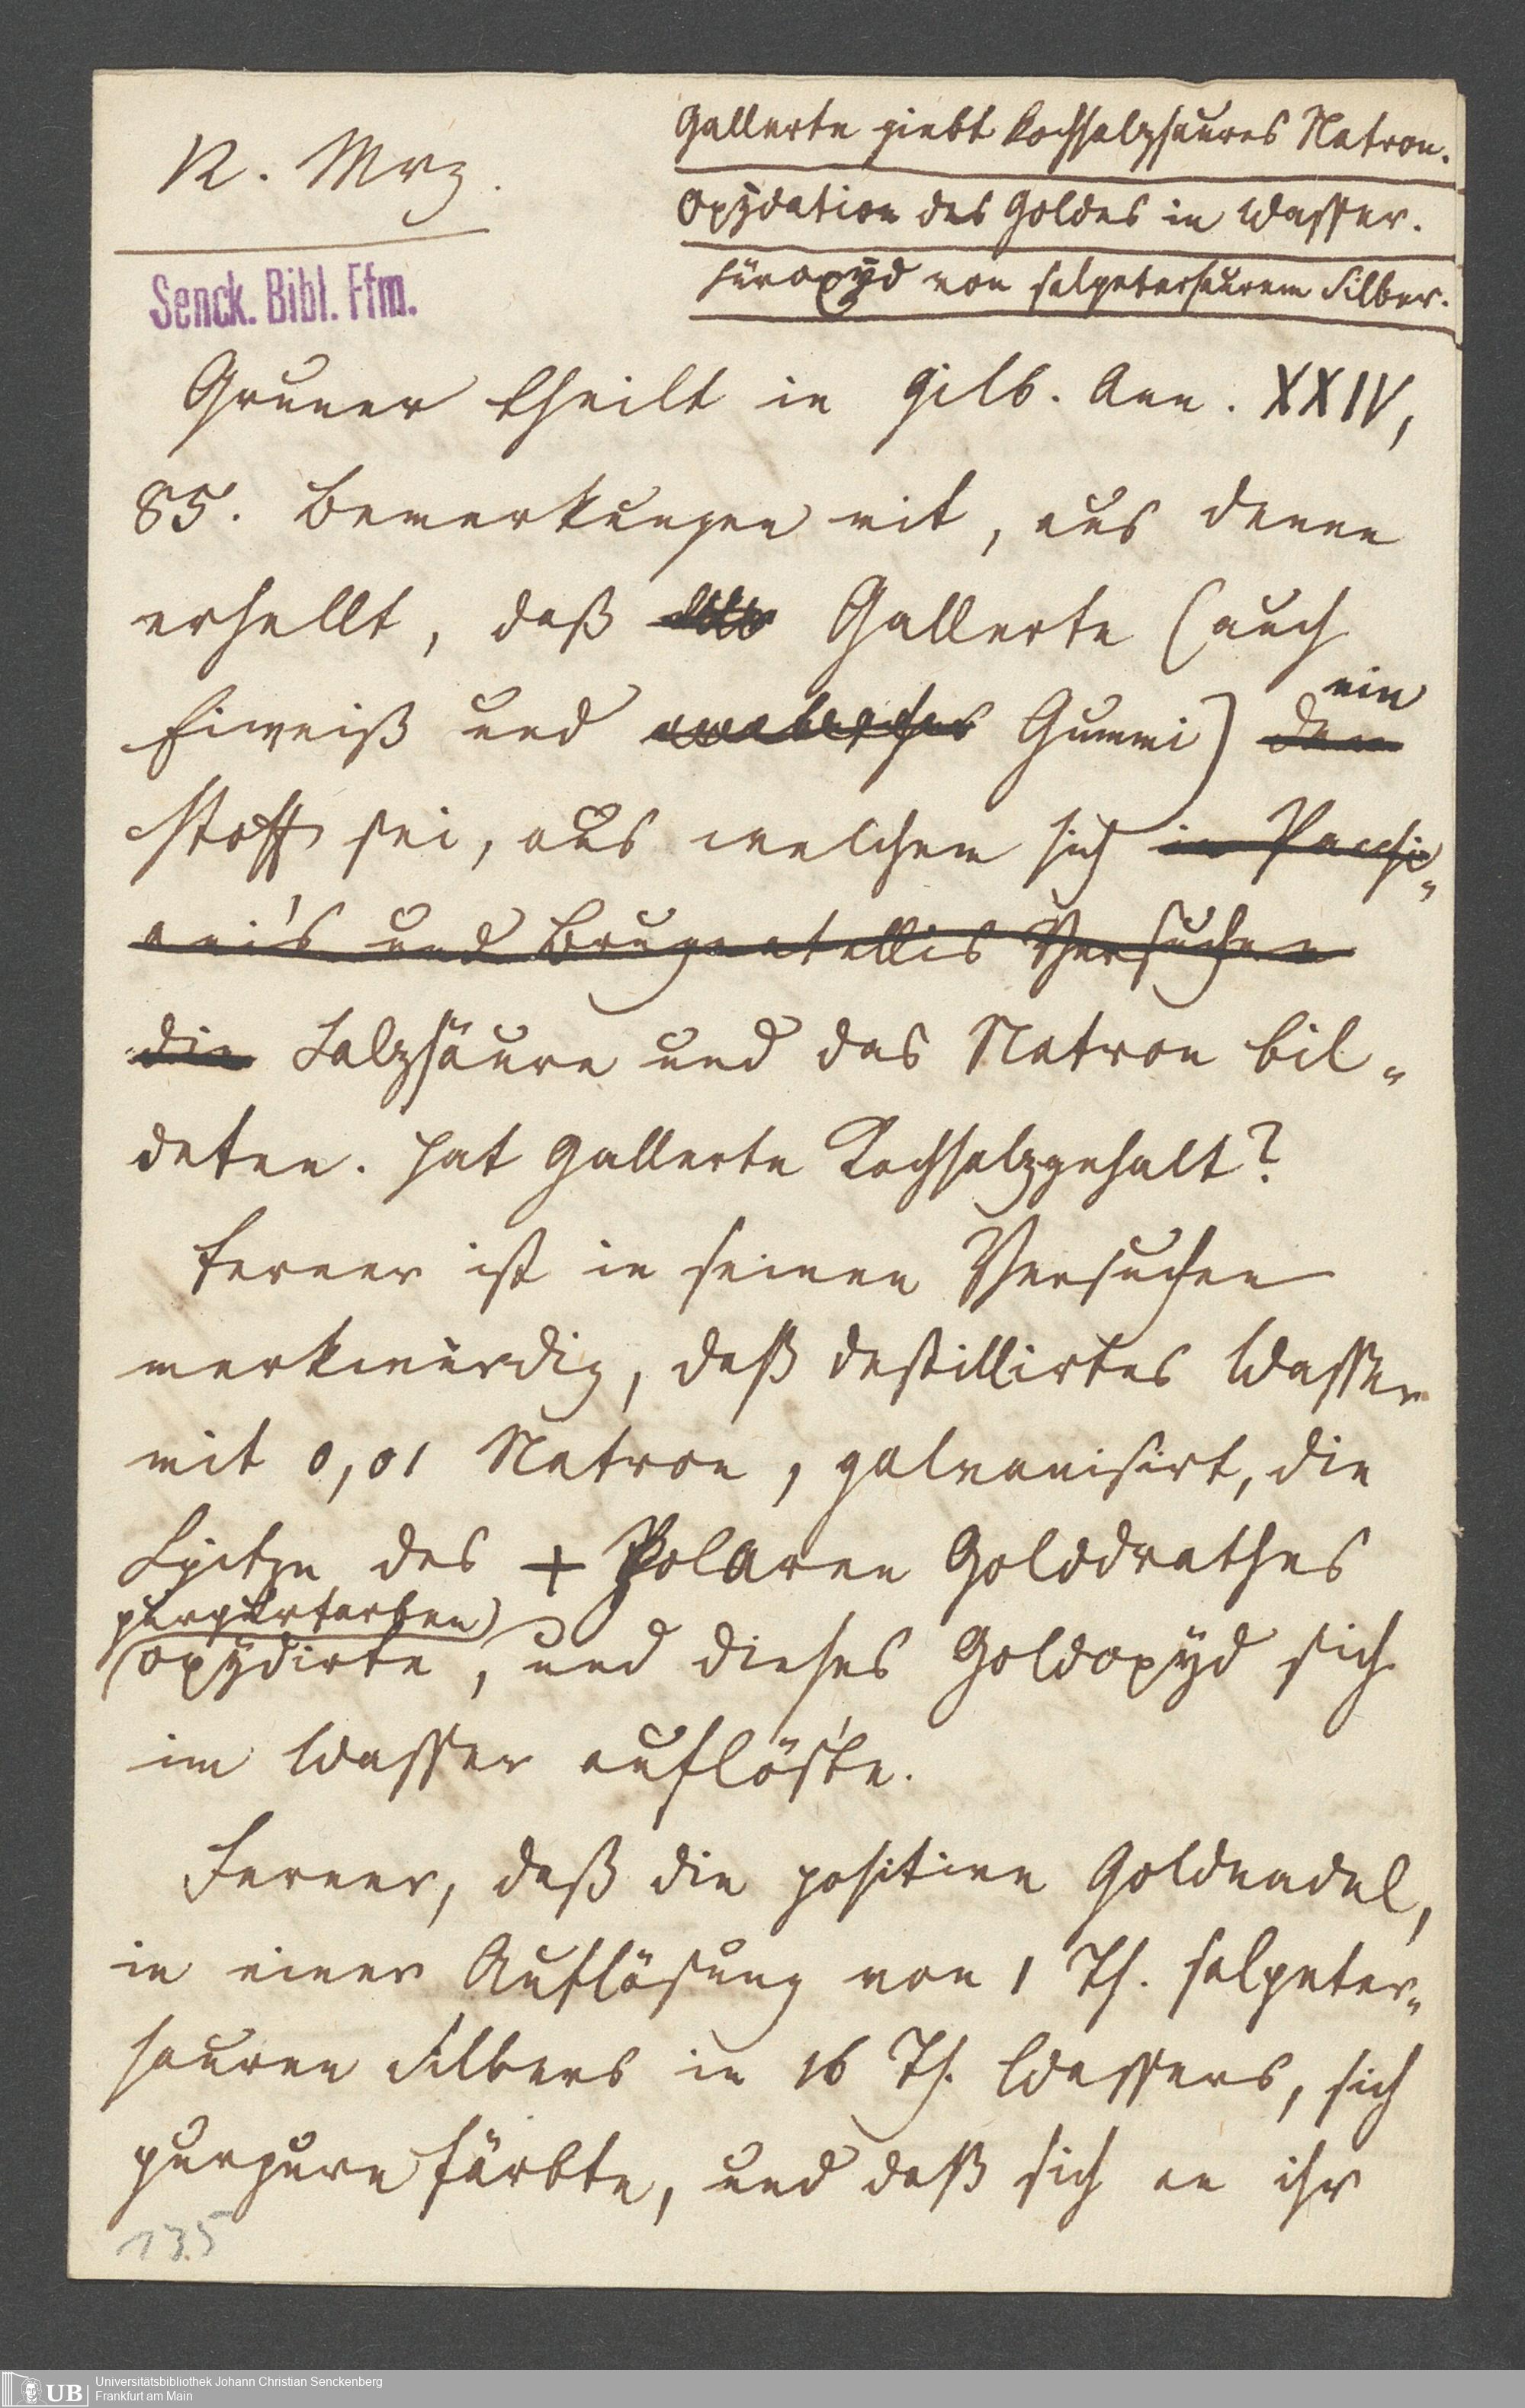 R. Mrz.
Gallerte giebt kochsalzsaures Natron.
Oxÿdation des Goldes in Wasser.
Süroxÿd von salpetersaurem Silber.
Senck. Bibl. Ffm.
Gruner theilt in Gilb. Ann. XXIV,
85. Bemerkungen mit, aus denen
erhellt, daß Gallerte (auch
Eiweiß und arabisches Gummi) den ein
Stoff sei, aus welchem sich in Pacchi-
ani's und Brugnatellis Versuchen
die Salzsäure und das Natron bil-
deten. Hat Gallerte Kochsalzgehalt?
Ferner ist in seinen Versuchen
merkwürdig, daß destillirtes Wasser
mit 0,01 Natron, galvanisirt, die
Spitze des + Polaren Golddrathes
purpurfarben
oxÿdirte, und dieses Goldoxÿd sich
im Wasser auflös'te.
Ferner, daß die positive Goldnadel,
in einer Auflösung von 1 Th. salpeter-
sauren Silbers in 16 Th. Wassers, sich
purpurn färbte, und daß sich an ihr
135
UB
Universitätsbibliothek Johann Christian Senckenberg
Frankfurt am Main